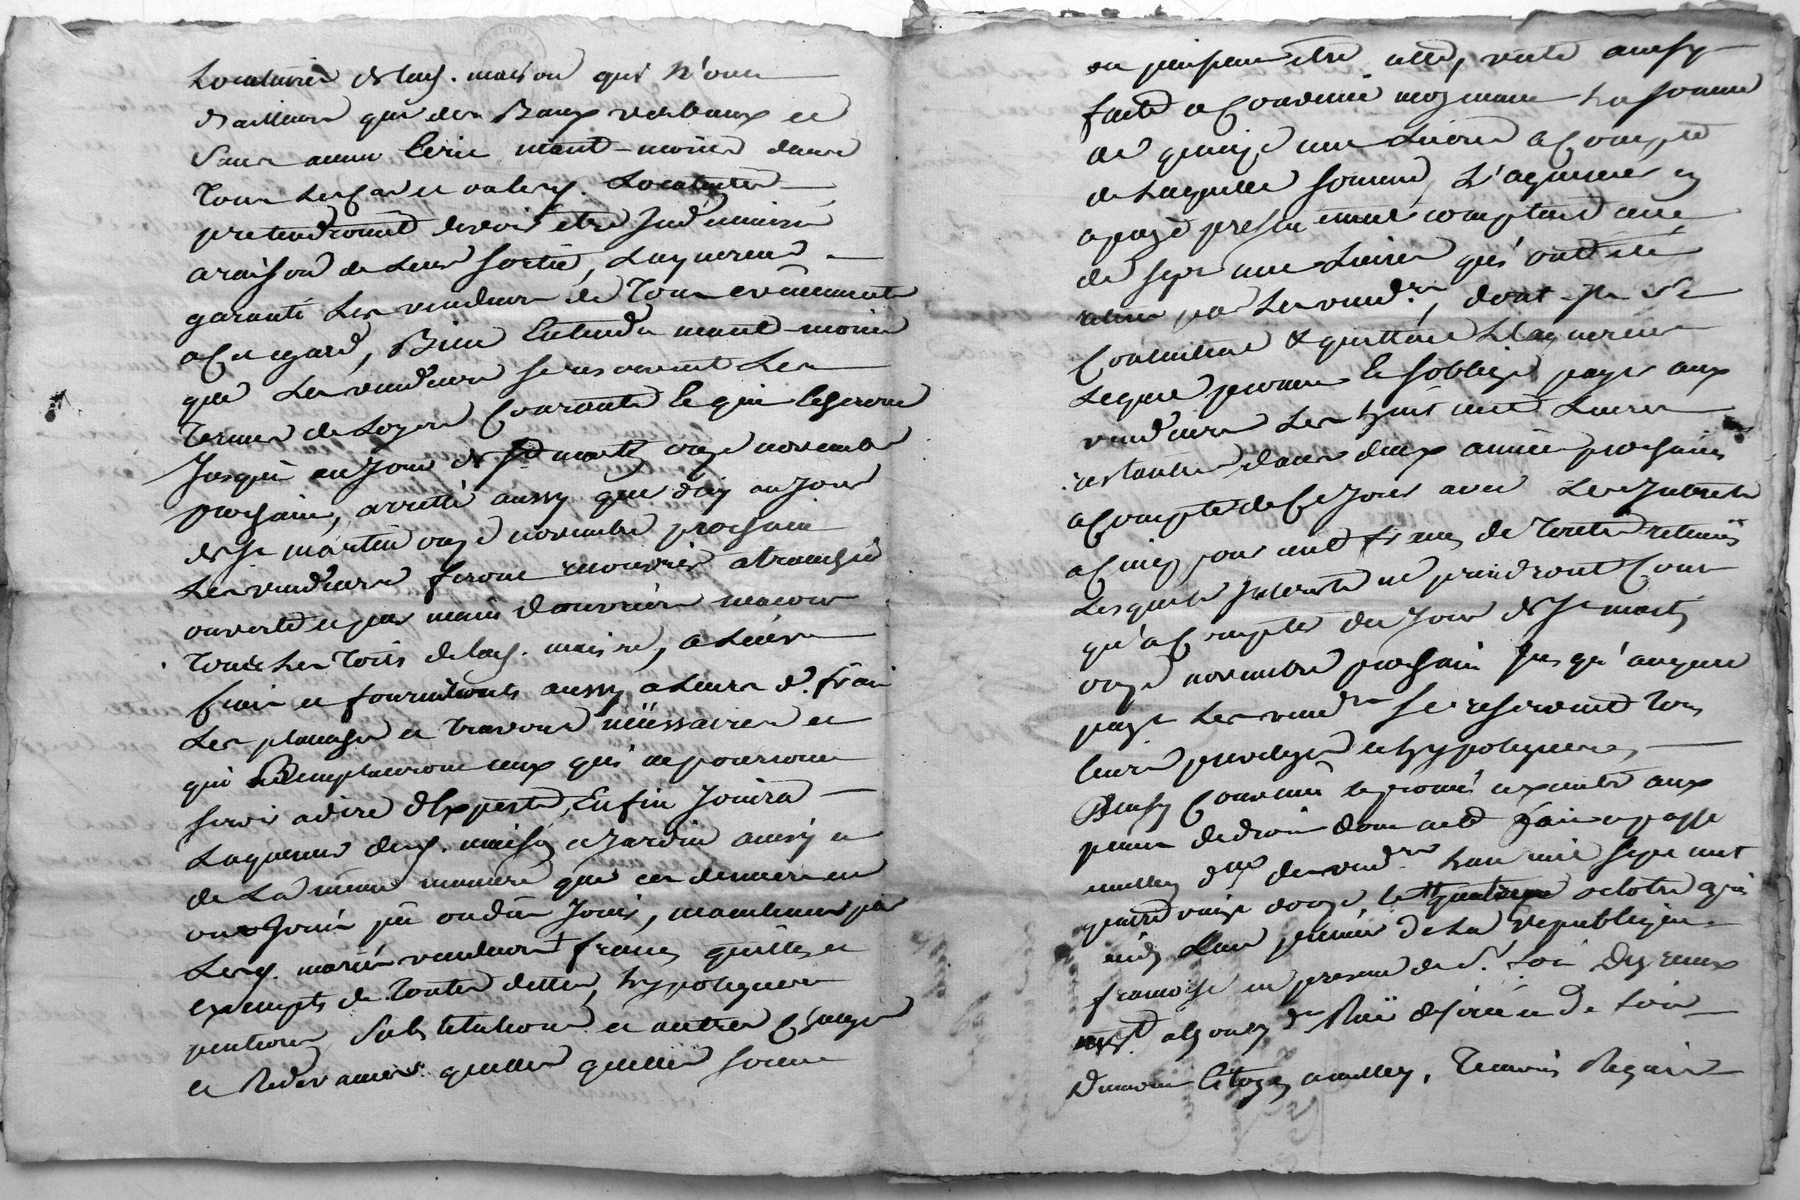 Locataires de lad. maison qui n'ont
d'ailleurs que des Baux verbaux et
sans aucun Ecrit neant-moins dans
tous les cas ou lesd. Locataires
pretendroient devoir être Indemnisé
a raison de Leur sortie, Laquereur
garanti Les vendeurs de Tous evénements
a Cet egard, Bien Entendu neant-moins
que Les vendeurs se reservent Les
termes de Loyers Courants le qui Escheront
Jusqu'au Jour de St martin onze novembre
prochain, arretté aussy que d'icy au Jour
de St martin onze novembre prochain
Les vendeurs feront recouvrir a tranchée
ouverte et par mains d'ouvriers
Tous Les Toits de lad. maison, a Leurs
frais et fournitures aussy a Leurs d. frais
Les planches et travons nécessaires et
qui Remplaceront ceux qui ne pourront
servir a dire d'Experts, Enfin Jouira
Laquereur desd. maison et Jardin ainsy et
de La même maniere que ces derniers en
ont Joui pû ou dû Jouir, moyennant par
Lesd. mariés vendeurs francs quittes et
exempts de Toutes dettes, hypoteques
pentions Substitutions et autres Charges
et Redevances quelles quelles soient
en puissent être, cette, vente ainsy
faite et Convenue moyenant La somme
de quinze cent Livres a Compte
de Laquelle somme, L'aquereur en
a payé presentement comptant celle
de sept cent Livres qui ont été
retirés par Les vendrs, dont ils se
Contentent & quittent L'aquereur
Lequel promet Et s'oblige payer aux
vendeurs Les huit cent Livres
restantes dans deux années prochaines
a Compter de Ce Jour avec Les Interets
a Cinq pour cent francs de Toutes retenües
Lesquels Interets ne prendront Cours
qu'a Compter du Jour de St martin
onze novembre prochain Jusqu'auquel
paye Les vendrs se reservent Tous
leurs privileges et hypoteques,
Ainsy Convenu le promis executer aux
peines de droit dont acte fait et passé
deux des vendrs L'an mil sept cent
quatre vingt douze le quatorze octobre apres
midy L'an premier de La Republique
francoise en presence de
de Loire
Citoyen, Temoins Requis